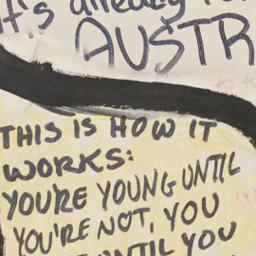 It's already
AUSTR
THIS IS HOW IT
WORKS:
YOU'RE YOUNG UNTIL
YOU'RE NOT, YOU
UNTIL YOU